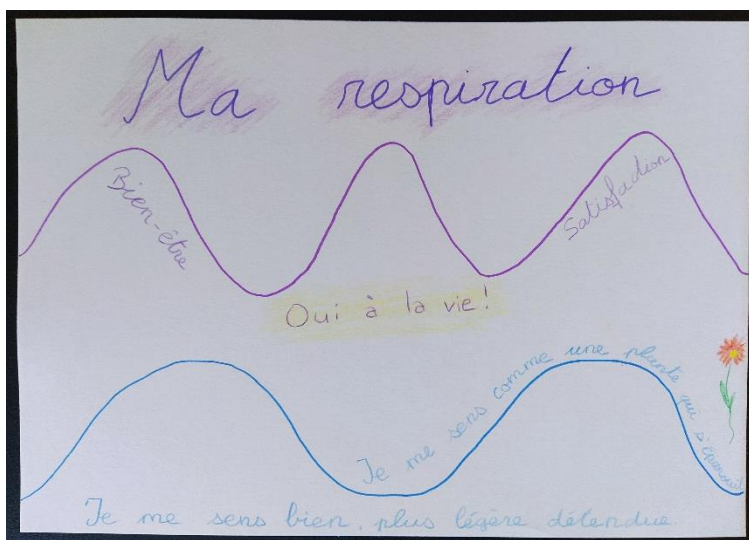 Ma respiration
Bien-être
Satisfaction
Oui à la vie!
Je me sens comme une plante qui s'épanouit
Je me sens bien, plus légère détendue.